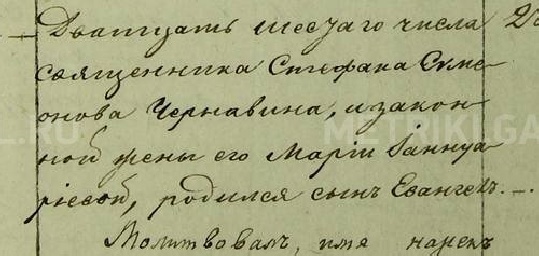 Дватцать шесчаго числа 2
священника Стефана Симе-
онова Чернавина, и закон-
ной жены его Маріи Іаннуа-
ріевой, родился сынъ Евангелъ. —
Молитвовалъ, имя нарекъ